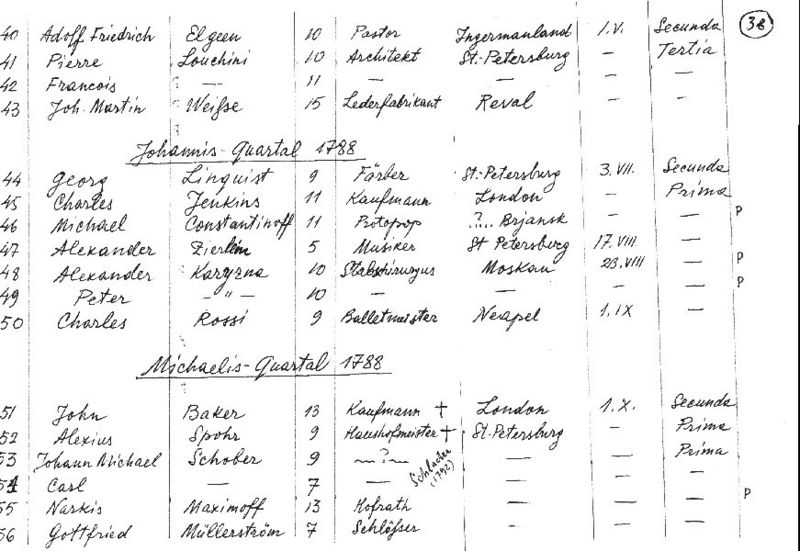 40 Adolf Friedrich Elgeen 10 Pastor Ingermanland 1.V. Secunda 38
41 Pierre Louchini 10 Architekt St.-Petersburg – Tertia
42 Francois — 11 — — – —
43 Joh. Martin Weiße 15 Lederfabrikant Reval – –
Johannis-Quartal 1788
44 Georg Linquist 9 Färber St.-Petersburg 3.VII. Secunda
45 Charles Jenkins 11 Kaufmann London – Prima
46 Michael Constantinoff 11 Protopop ?.... Brjansk – — P
47 Alexander Zierlein 5 Musiker St Petersburg 17.VIII —
48 Alexander Kargzna 10 Stabschirurgus Moskau 28.VIII — P
49 Peter –"— 10 — — – — P
50 Charles Rossi 9 Balletmeister Neapel 1.IX —
Michaelis-Quartal 1788
51 John Baker 13 Kaufmann † London 1.X. Secunda
52 Alexius Spohr 9 Haushofmeister † St.-Petersburg – Prima
53 Johann Michael Schober 9 ~?~ — — Prima
54 Carl — 7 — Schlader (1792) — — —
55 Narkis Maximoff 13 Hofrath — — — P
56 Gottfried Müllerström 7 Schlößer – — —